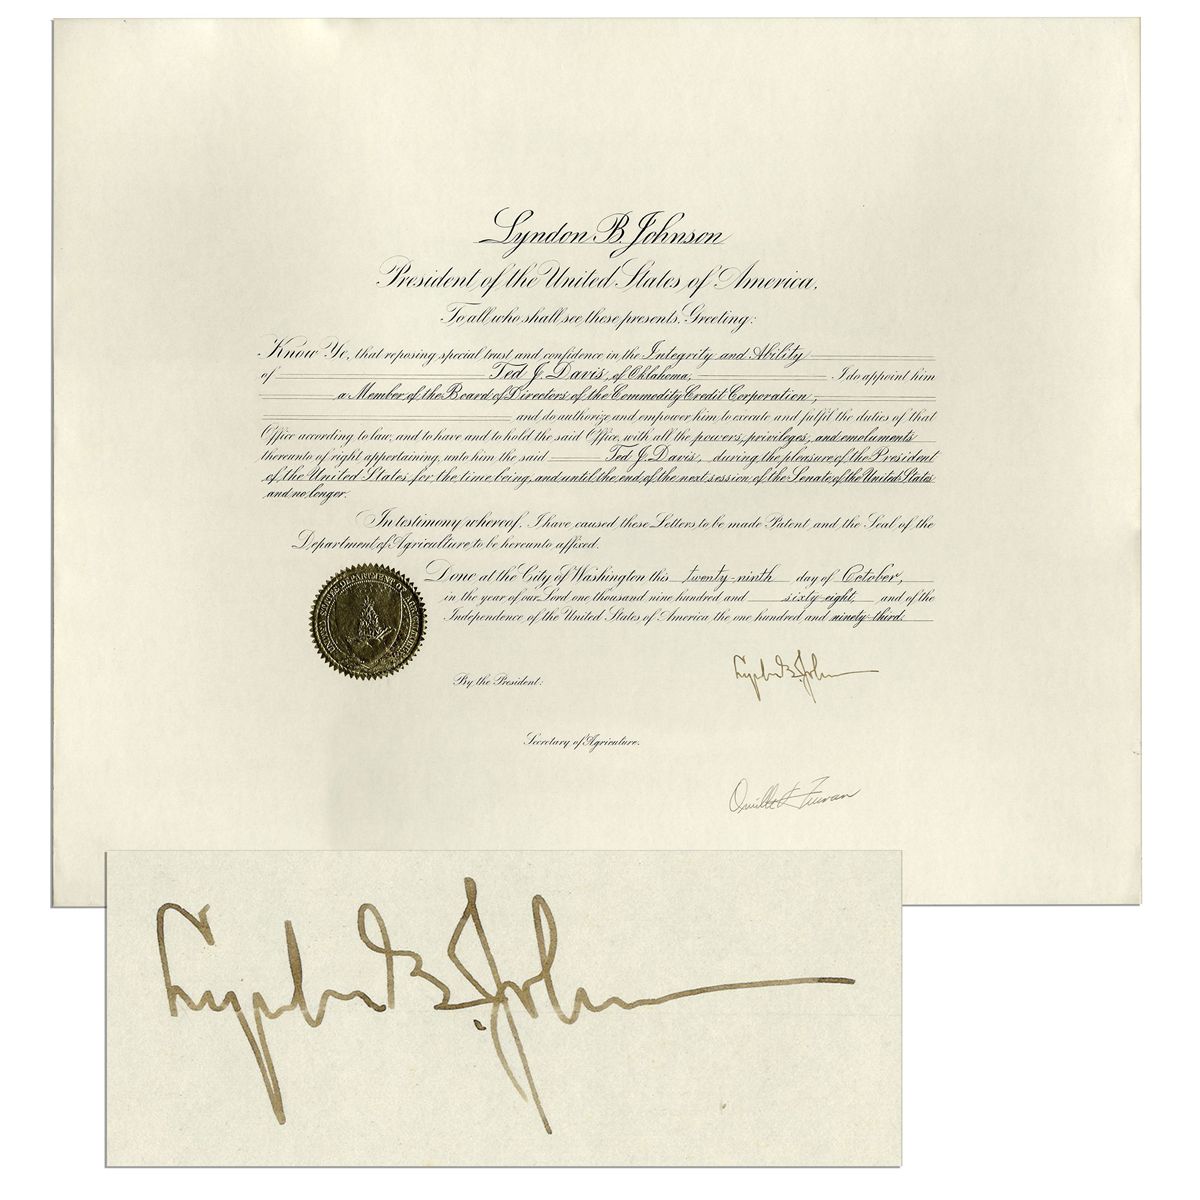 Lyndon B. Johnson
President of the United States of America.
To all who shall see these presents, Greeting:
Know Ye, that reposing special trust and confidence in the Integrity and Ability
of Ted J. Davis, of Oklahoma, I do appoint him
a Member of the Board of Directors of the Commodity Credit Corporation,
and do authorize and empower him to execute and fulfil the duties of that
Office according to law, and to have and to hold the said Office, with all the powers, privileges, and emoluments
thereunto of right appertaining, unto him the said Ted J. Davis, during the pleasure of the President
of the United States for the time being, and until the end of the next session of the Senate of the United States
and no longer.
In testimony whereof, I have caused these Letters to be made Patent and the Seal of the
Department of Agriculture to be hereunto affixed.
Done at the City of Washington this twenty-ninth day of October,
in the year of our Lord one thousand nine hundred and sixty-eight, and of the
Independence of the United States of America the one hundred and ninety-third.
UNITED STATES DEPARTMENT OF AGRICULTURE
Lyndon B. Johnson
By the President:
Secretary of Agriculture.
Orville L Freeman
Lyndon B. Johnson